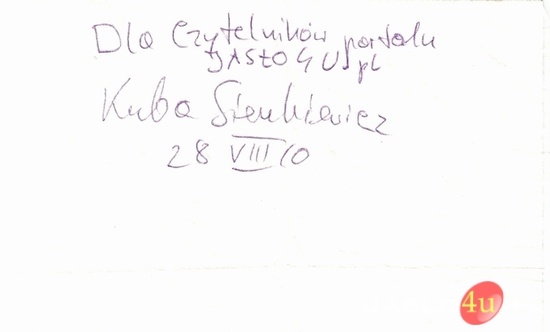 Dla Czytelników portalu
JASŁO4U.pl
Kuba Sienkiewicz
28 VIII 10
4u